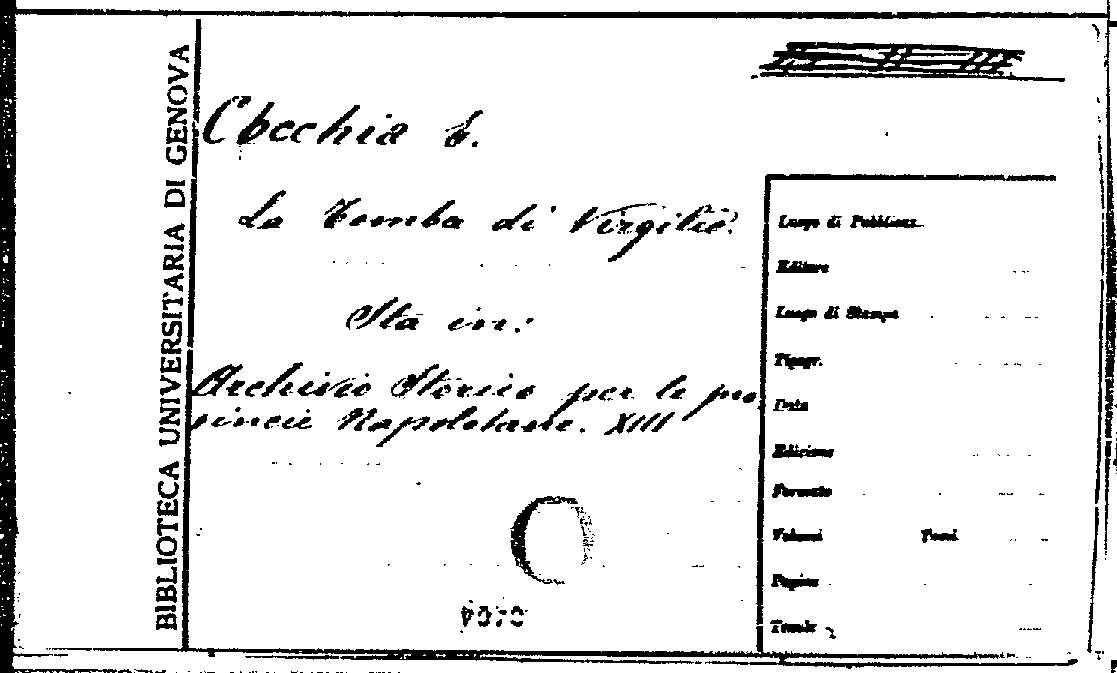 BIBLIOTECA UNIVERSITARIA DI GENOVA
Cocchia E.
La Tomba di Virgilio.
Sta in:
Archivio Storico per le pro
vincie Napoletane. XIII
Luogo di Pubblicaz.
Editore
Luogo di Stampa
Tipogr.
Data
Edizione
Formato
Volumi Tomi
Pagine
Tavole